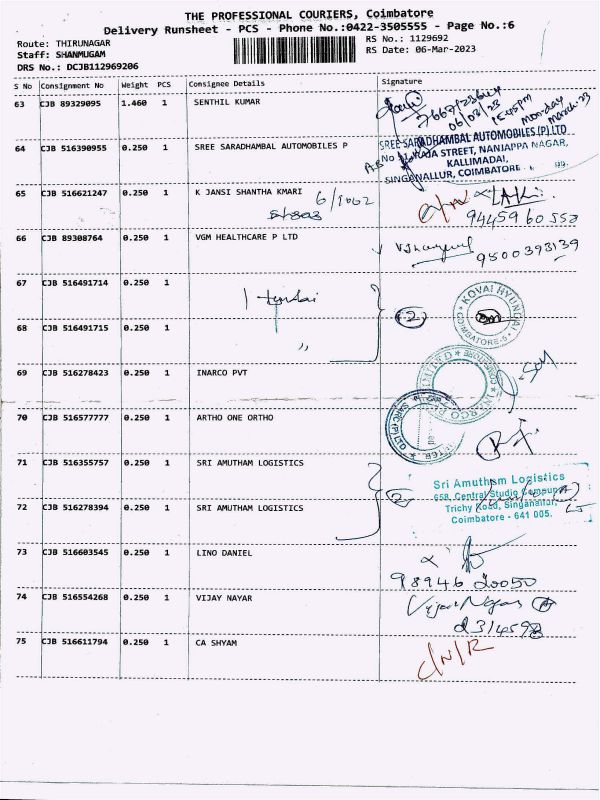 THE PROFESSIONAL COURIERS, Coimbatore
Delivery Runsheet - PCS - Phone No.:0422-3505555 - Page No.:6
Route: THIRUNAGAR
Staff: SHANMUGAM
DRS No.: DCJB112969206
RS No.: 1129692
RS Date: 06-Mar-2023
S No Consignment No Weight PCS Consignee Details Signature
63 CJB 89329095 1.460 1 SENTHIL KUMAR
06/03/23
15:45pm
Monday
March-23
64 CJB 516390955 0.250 1 SREE SARADHAMBAL AUTOMOBILES P
SREE SARADHAMBAL AUTOMOBILES (P) LTD
RAJA STREET, NANJAPPA NAGAR,
KALLIMADAI,
SINGANALLUR, COIMBATORE
65 CJB 516621247 0.250 1 K JANSI SHANTHA KMARI 6/1062
9445960552
66 CJB 89308764 0.250 1 VGM HEALTHCARE P LTD
9500393139
67 CJB 516491714 0.250 1
2
KOVAI HYUNDAI
COIMBATORE-5
68 CJB 516491715 0.250 1 "
69 CJB 516278423 0.250 1 INARCO PVT
70 CJB 516577777 0.250 1 ARTHO ONE ORTHO
71 CJB 516355757 0.250 1 SRI AMUTHAM LOGISTICS
2
Sri Amutham Logistics
658, Central Studio Compund
Trichy Road, Singanallur,
Coimbatore - 641 005.
72 CJB 516278394 0.250 1 SRI AMUTHAM LOGISTICS
73 CJB 516603545 0.250 1 LINO DANIEL
98946 20050
74 CJB 516554268 0.250 1 VIJAY NAYAR
Vijay Nayar
75 CJB 516611794 0.250 1 CA SHYAM
C/N/R